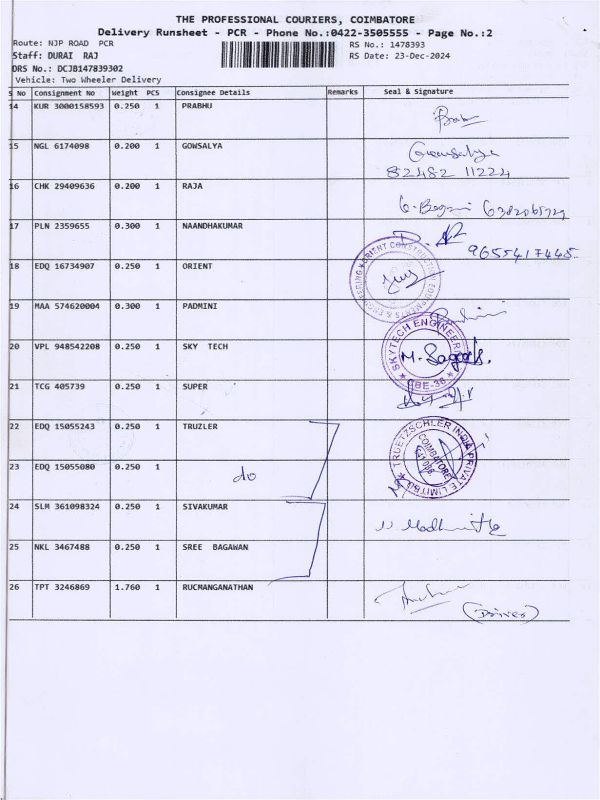 THE PROFESSIONAL COURIERS, COIMBATORE
Delivery Runsheet - PCR - Phone No.:0422-3505555 - Page No.:2
Route: NJP ROAD PCR
RS No.: 1478393
Staff: DURAI RAJ
RS Date: 23-Dec-2024
DRS No.: DCJB147839302
Vehicle: Two Wheeler Delivery
S No Consignment No Weight PCS Consignee Details Remarks Seal & Signature
14 KUR 3000158593 0.250 1 PRABHU
15 NGL 6174098 0.200 1 GOWSALYA Gowsalya
82482 11224
16 CHK 29409636 0.200 1 RAJA
17 PLN 2359655 0.300 1 NAANDHAKUMAR
9655417445
18 EDQ 16734907 0.250 1 ORIENT
19 MAA 574620004 0.300 1 PADMINI
20 VPL 948542208 0.250 1 SKY TECH
SKYTECH ENGINEER
CBE-36
21 TCG 405739 0.250 1 SUPER
22 EDQ 15055243 0.250 1 TRUZLER
TRUETZSCHLER INDIA PRIVATE LIMITED
COIMBATORE
23 EDQ 15055080 0.250 1 do
24 SLM 361098324 0.250 1 SIVAKUMAR
25 NKL 3467488 0.250 1 SREE BAGAWAN
26 TPT 3246869 1.760 1 RUCMANGANATHAN
(Driver)